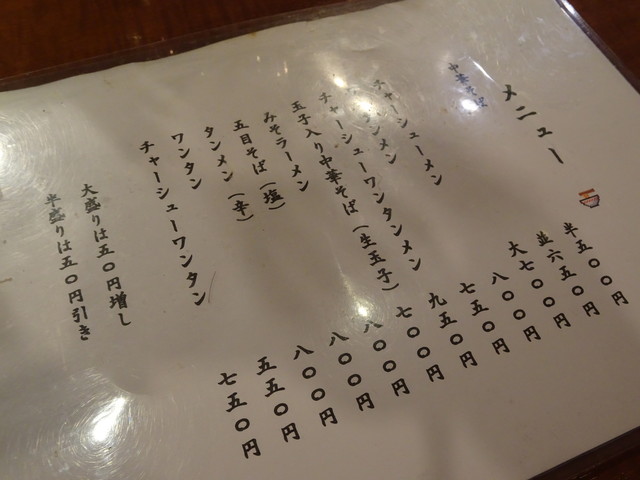 メニュー
中華そば 半五〇〇円
並六五〇円
大七〇〇円
チャーシューメン 八〇〇円
ワンタンメン 七五〇円
チャーシューワンタンメン 九五〇円
玉子入り中華そば(生玉子) 七〇〇円
みそラーメン 八〇〇円
五目そば(塩) 八〇〇円
タンメン(辛) 八〇〇円
ワンタン 五五〇円
チャーシューワンタン 七五〇円
大盛りは五〇円増し
半盛りは五〇円引き